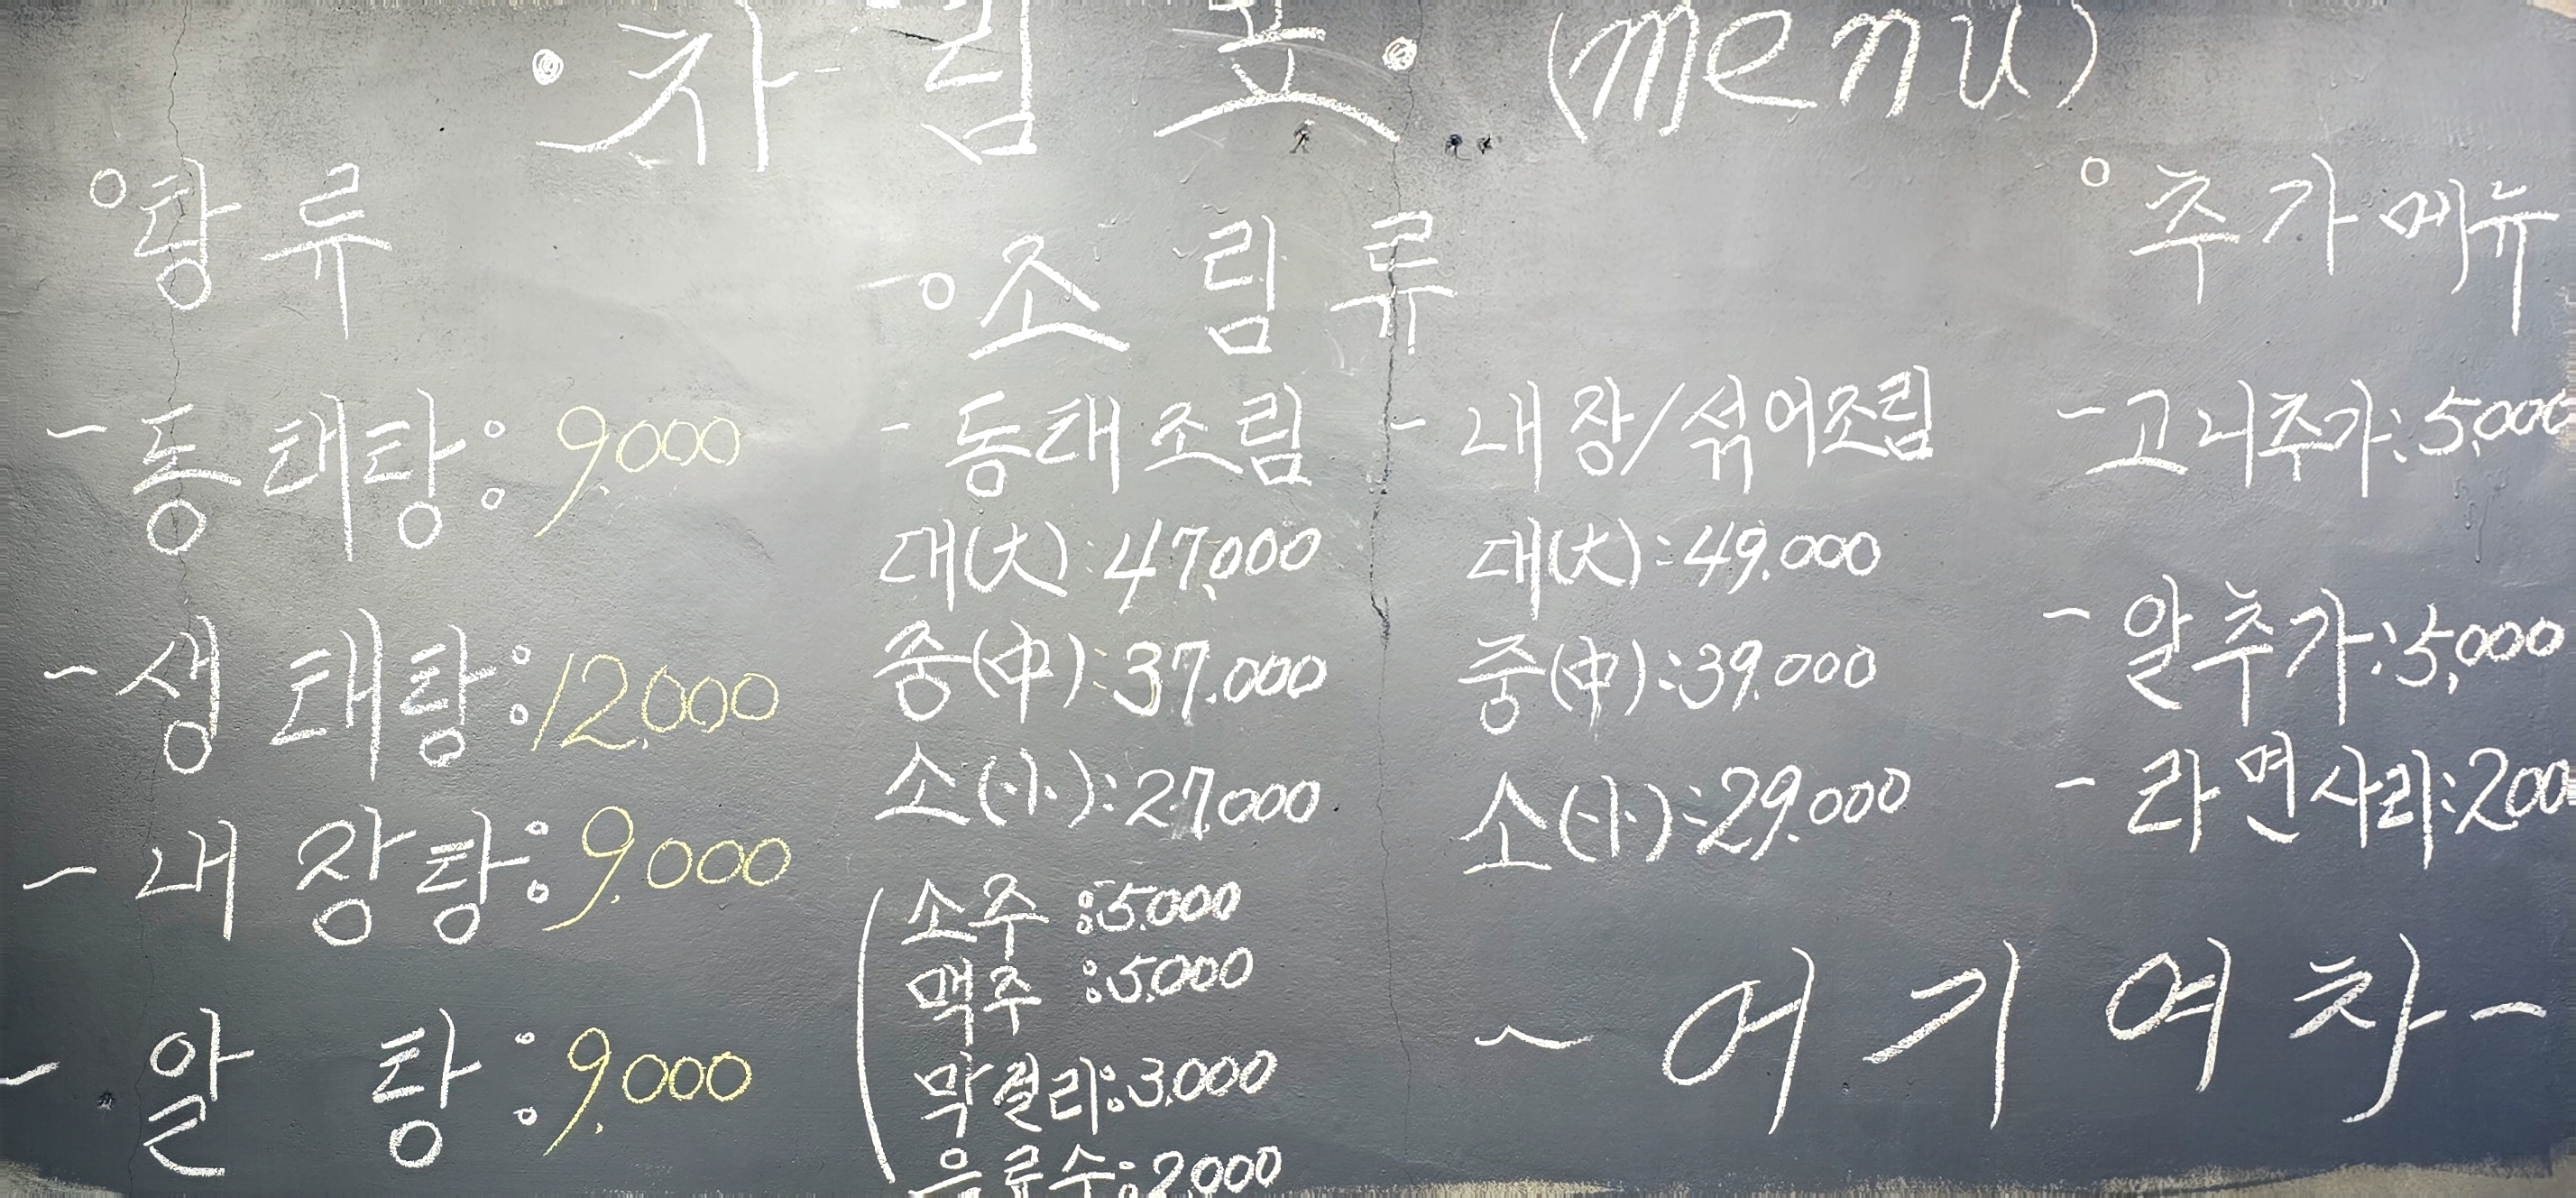 차림표 (menu)
탕류
- 동태탕: 9,000
- 생태탕: 12,000
- 내장탕: 9,000
- 알탕: 9,000
조림류
- 동태조림
대(大): 47,000
중(中): 37.000
소(小): 27,000
- 내장/섞어조림
대(大): 49.000
중(中): 39.000
소(小): 29.000
소주: 5.000
맥주: 5.000
막걸리: 3.000
음료수: 2,000
추가메뉴
- 고니추가: 5,000
- 알추가: 5,000
- 라면사리: 200
~ 어기여차 ~